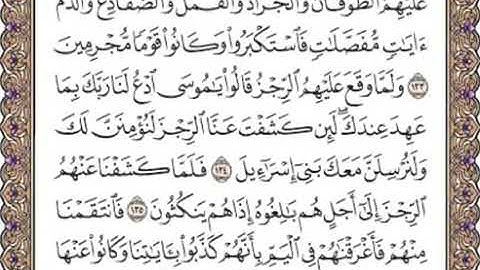 عَلَيْهِمُ ٱلطُّوفَانَ وَٱلْجَرَادَ وَٱلْقُمَّلَ وَٱلضَّفَادِعَ وَٱلدَّمَ
ءَايَٰتٍ مُّفَصَّلَٰتٍ فَٱسْتَكْبَرُوا۟ وَكَانُوا۟ قَوْمًا مُّجْرِمِينَ
١٣٣ وَلَمَّا وَقَعَ عَلَيْهِمُ ٱلرِّجْزُ قَالُوا۟ يَٰمُوسَى ٱدْعُ لَنَا رَبَّكَ بِمَا
عَهِدَ عِندَكَ ۖ لَئِن كَشَفْتَ عَنَّا ٱلرِّجْزَ لَنُؤْمِنَنَّ لَكَ
وَلَنُرْسِلَنَّ مَعَكَ بَنِىٓ إِسْرَٰٓءِيلَ ١٣٤ فَلَمَّا كَشَفْنَا عَنْهُمُ
ٱلرِّجْزَ إِلَىٰٓ أَجَلٍ هُم بَٰلِغُوهُ إِذَا هُمْ يَنكُثُونَ ١٣٥ فَٱنتَقَمْنَا
مِنْهُمْ فَأَغْرَقْنَٰهُمْ فِى ٱلْيَمِّ بِأَنَّهُمْ كَذَّبُوا۟ بِـَٔايَٰتِنَا وَكَانُوا۟ عَنْهَا